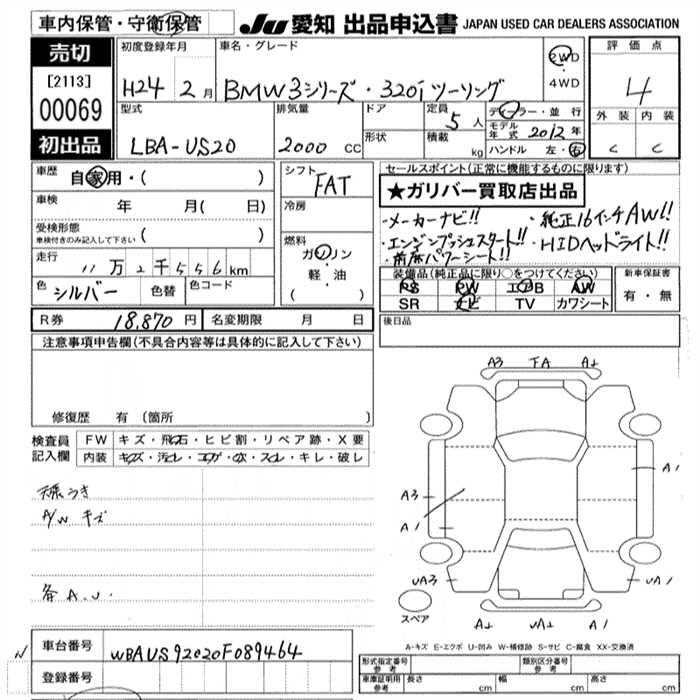 車内保管・守衛保管
JU 愛知 出品申込書 JAPAN USED CAR DEALERS ASSOCIATION
売切
[2113]
00069
初出品
初度登録年月
H24 2月
車名・グレード
BMW3シリーズ・320iツーリング
2WD
4WD
評価点
4
外装 内装
C C
型式
LBA-US20
排気量
2000 CC
ドア
形状
定員
5人
積載
kg
ディーラー・並行
モデル年式 2012年
ハンドル 左・右
車歴
自家用・( )
車検
年 月( 日)
受検形態
車検付きのみ記入して下さい ( )
走行
11万2千556km
色
シルバー
色替
色コード
シフト
FAT
冷房
燃料
ガソリン
軽・油
( )
セールスポイント(正常に機能するものに限ります)
★ガリバー買取店出品
・メーカーナビ!! ・純正16インチAW!!
・エンジンプッシュスタート!! ・HIDヘッドライト!!
・前席パワーシート!!
装備品(純正品に限り○をつけてください)
PS PW エアB AW
SR ナビ TV カワシート
新車保証書
有・無
R券 18,870円
名変期限 月 日
後日品
注意事項申告欄(不具合内容等は具体的に記入して下さい)
修復歴 有 (箇所 )
検査員
記入欄
FW キズ・飛石・ヒビ割・リペア跡・X要
内装 キズ・汚レ・コゲ・穴・スレ・キレ・破レ
天張うき
A/W キズ
各A.U
A3 FA A2
A1
A3
A1
UA3 UA1
スペア
A2 UA2 A2
A-キズ E-エクボ U-凹み W-補修跡 S-サビ C-腐食 XX-交換済
車台番号
WBAUS92020F089464
登録番号
形式指定番号
参考
類別区分番号
参考
車庫証明用
参考
長さ cm 幅 cm 高さ cm